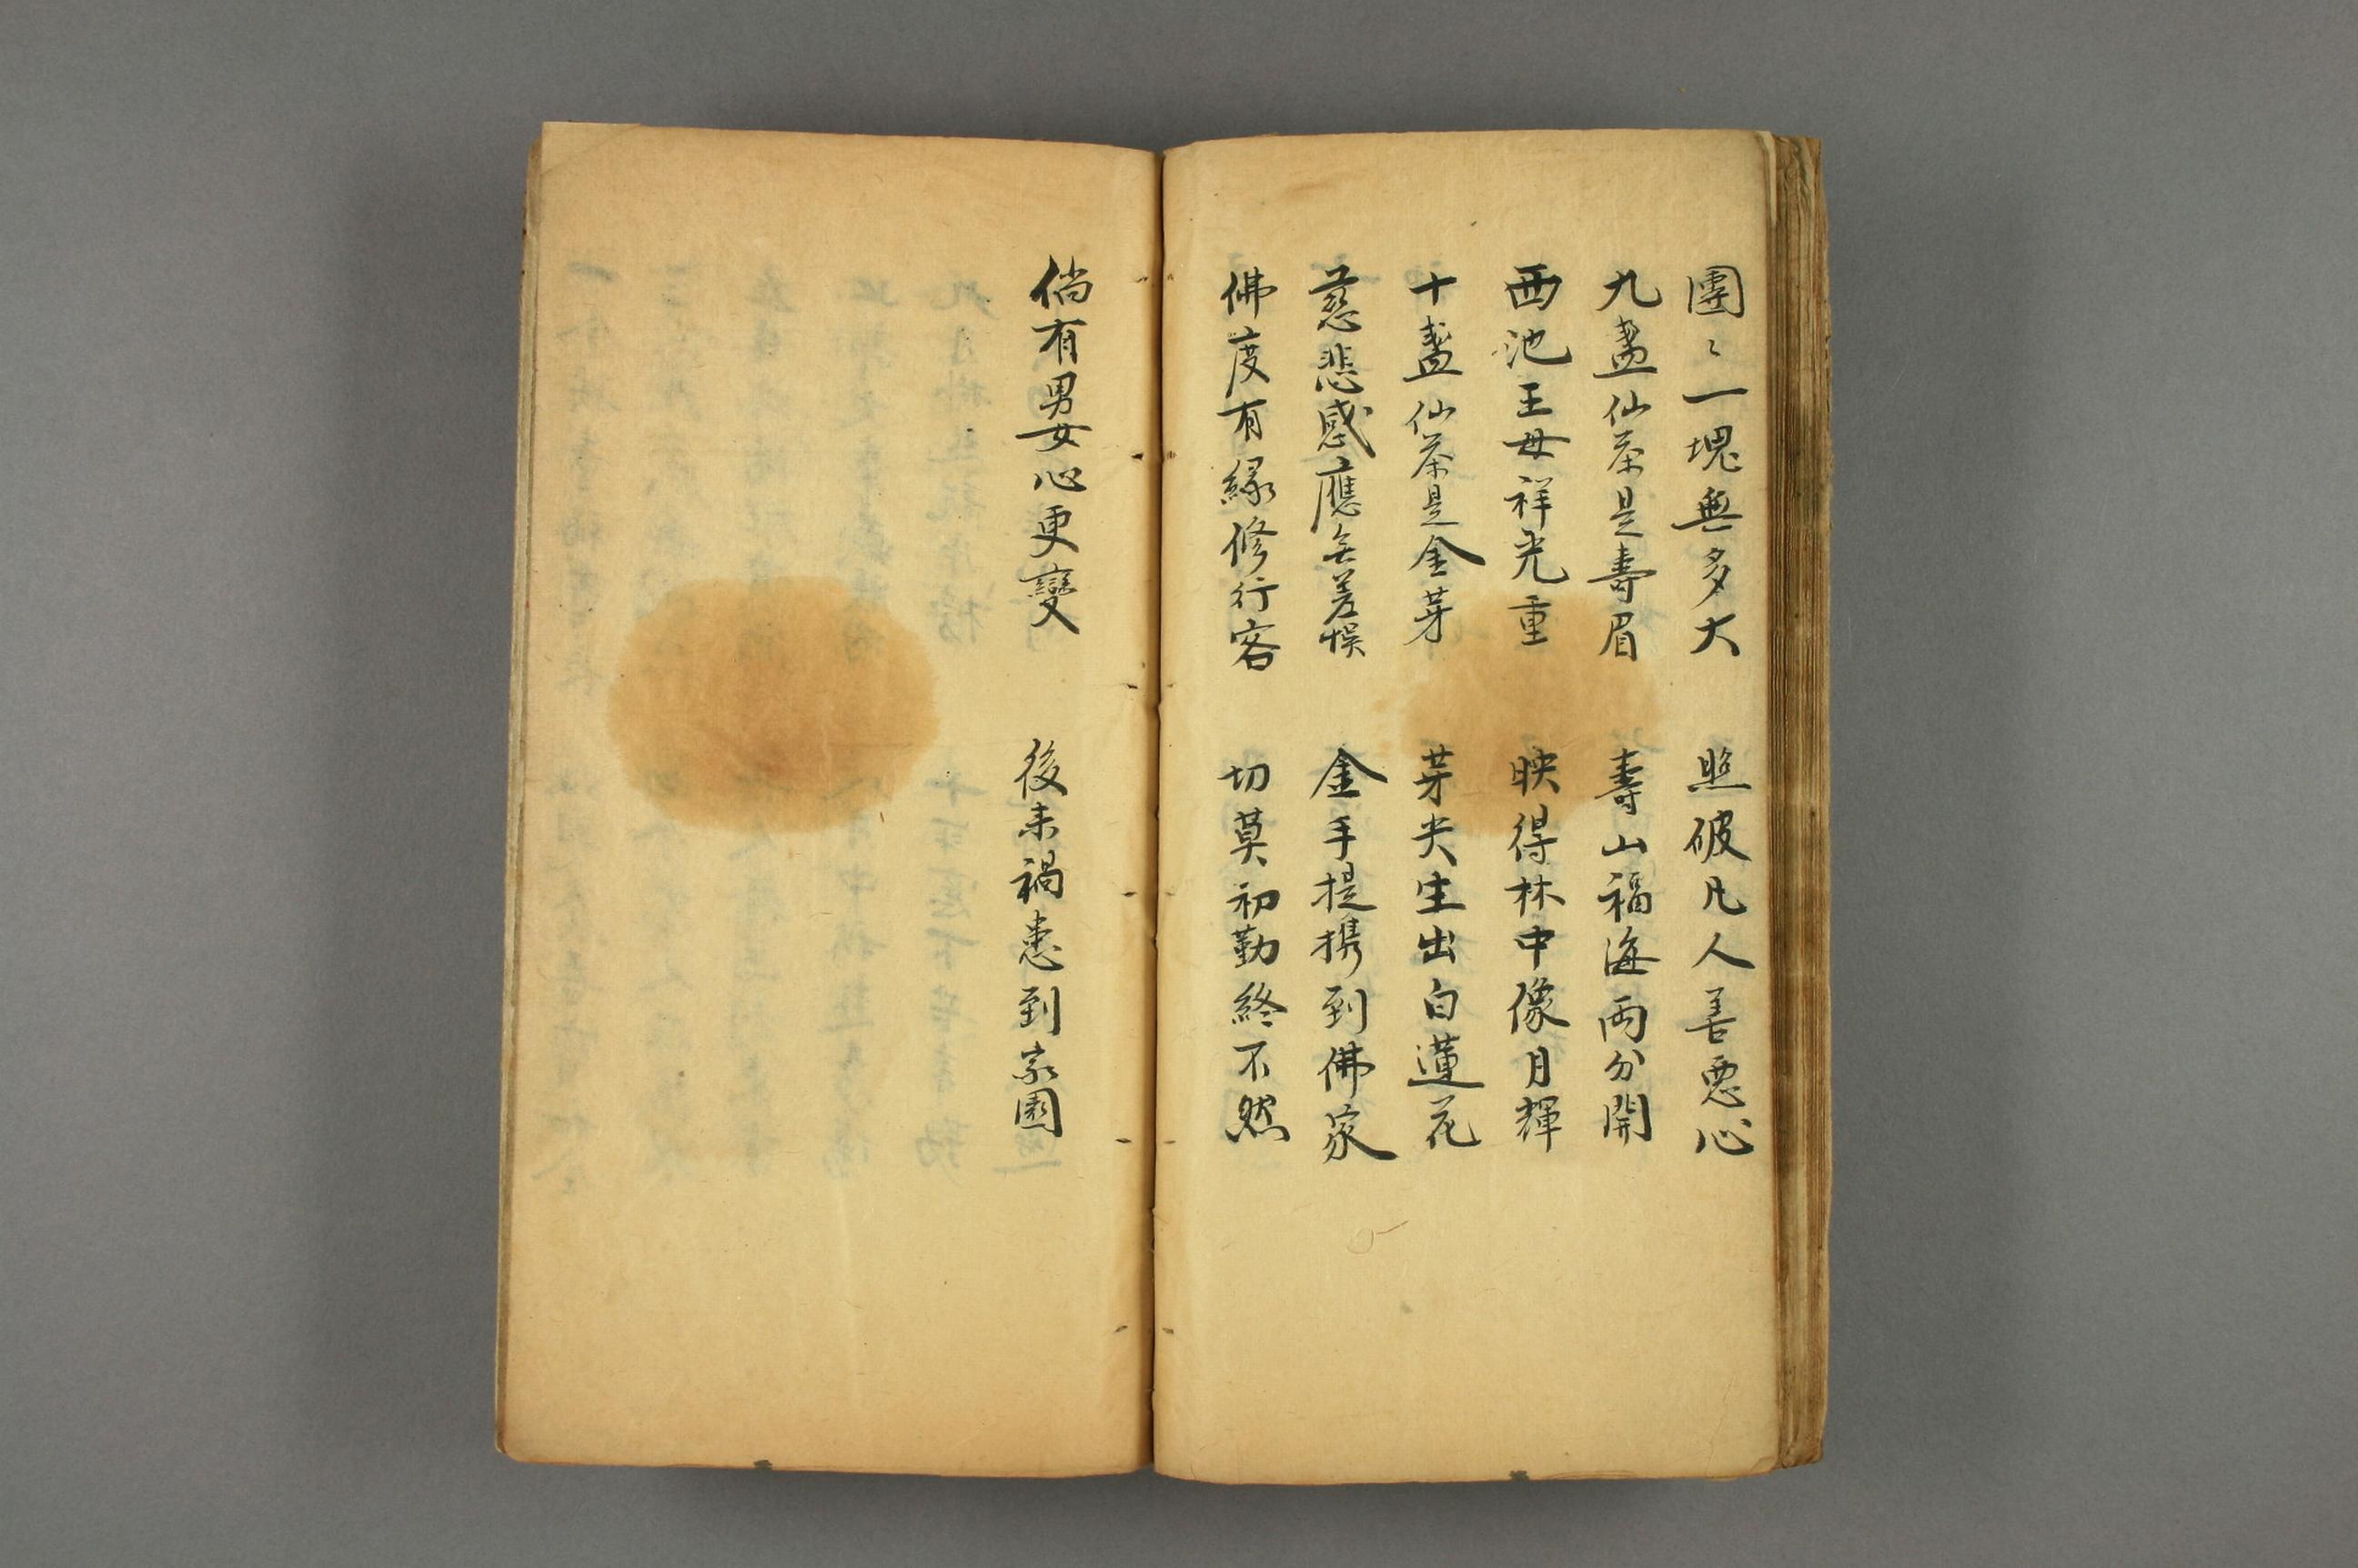 團〻一塊無多大　照破凡人善惡心
九盞仙茶是壽眉　壽山福海両分開
西池王母祥光重　映得林中像月輝
十盞仙茶是金芽　芽尖生出白蓮花
慈悲感應无差悮　金手提携到佛家
佛度有緣修行客　切莫初勤終不然
倘有男女心更變　後来禍患到家園